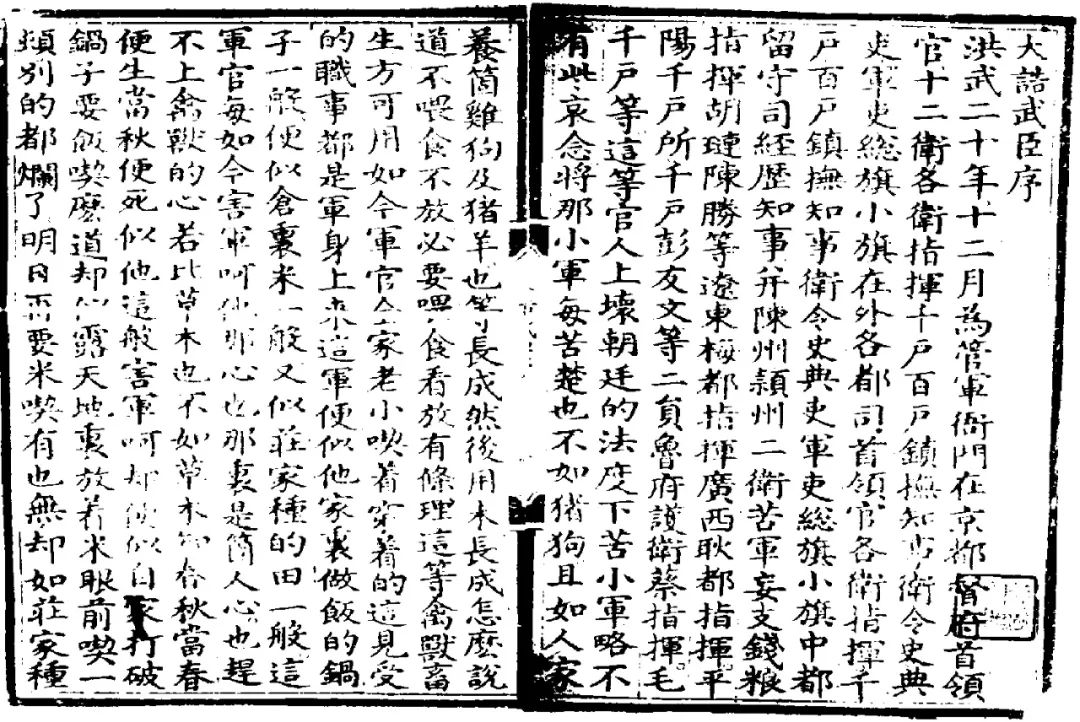 大誥武臣序
洪武二十年十二月為管軍衙門在京都督府首領
官十二衛各衛指揮千戶百戶鎮撫知事衛令史典
吏軍吏総旗小旗在外各都司首領官各衛指揮千
戶百戶鎮撫知事衛令史典吏軍吏総旗小旗中都
留守司経歷知事并陳州潁州二衛苦軍妄支錢粮
指揮胡璉陳勝等遼東梅都指揮廣西耿都指揮平
陽千戶所千戶彭友文等二負魯府護衛蔡指揮毛
千戶等這等官人上壞朝廷的法度下苦小軍略不
有此哀念將那小軍每苦楚也不如猪狗且如人家
養箇雞狗及猪羊也等長成然後用未長成怎麼說
道不喂食不放必要喂食看放有條理這等禽獸畜
生方可用如今軍官全家老小喫着穿着的這見受
的職事都是軍身上來這軍便似他家裏做飯的鍋
子一般便似倉裏米一般又似莊家種的田一般這
軍官每如今害軍呵他那心也那裏是箇人心也趕
不上禽獸的心若比草木也不如草木知春秋當春
便生當秋便死似他這般害軍呵却便似自家打破
鍋子要飯喫麼道却似露天地裏放着米眼前喫一
頓別的都爛了明日再要米喫有也無却如莊家種